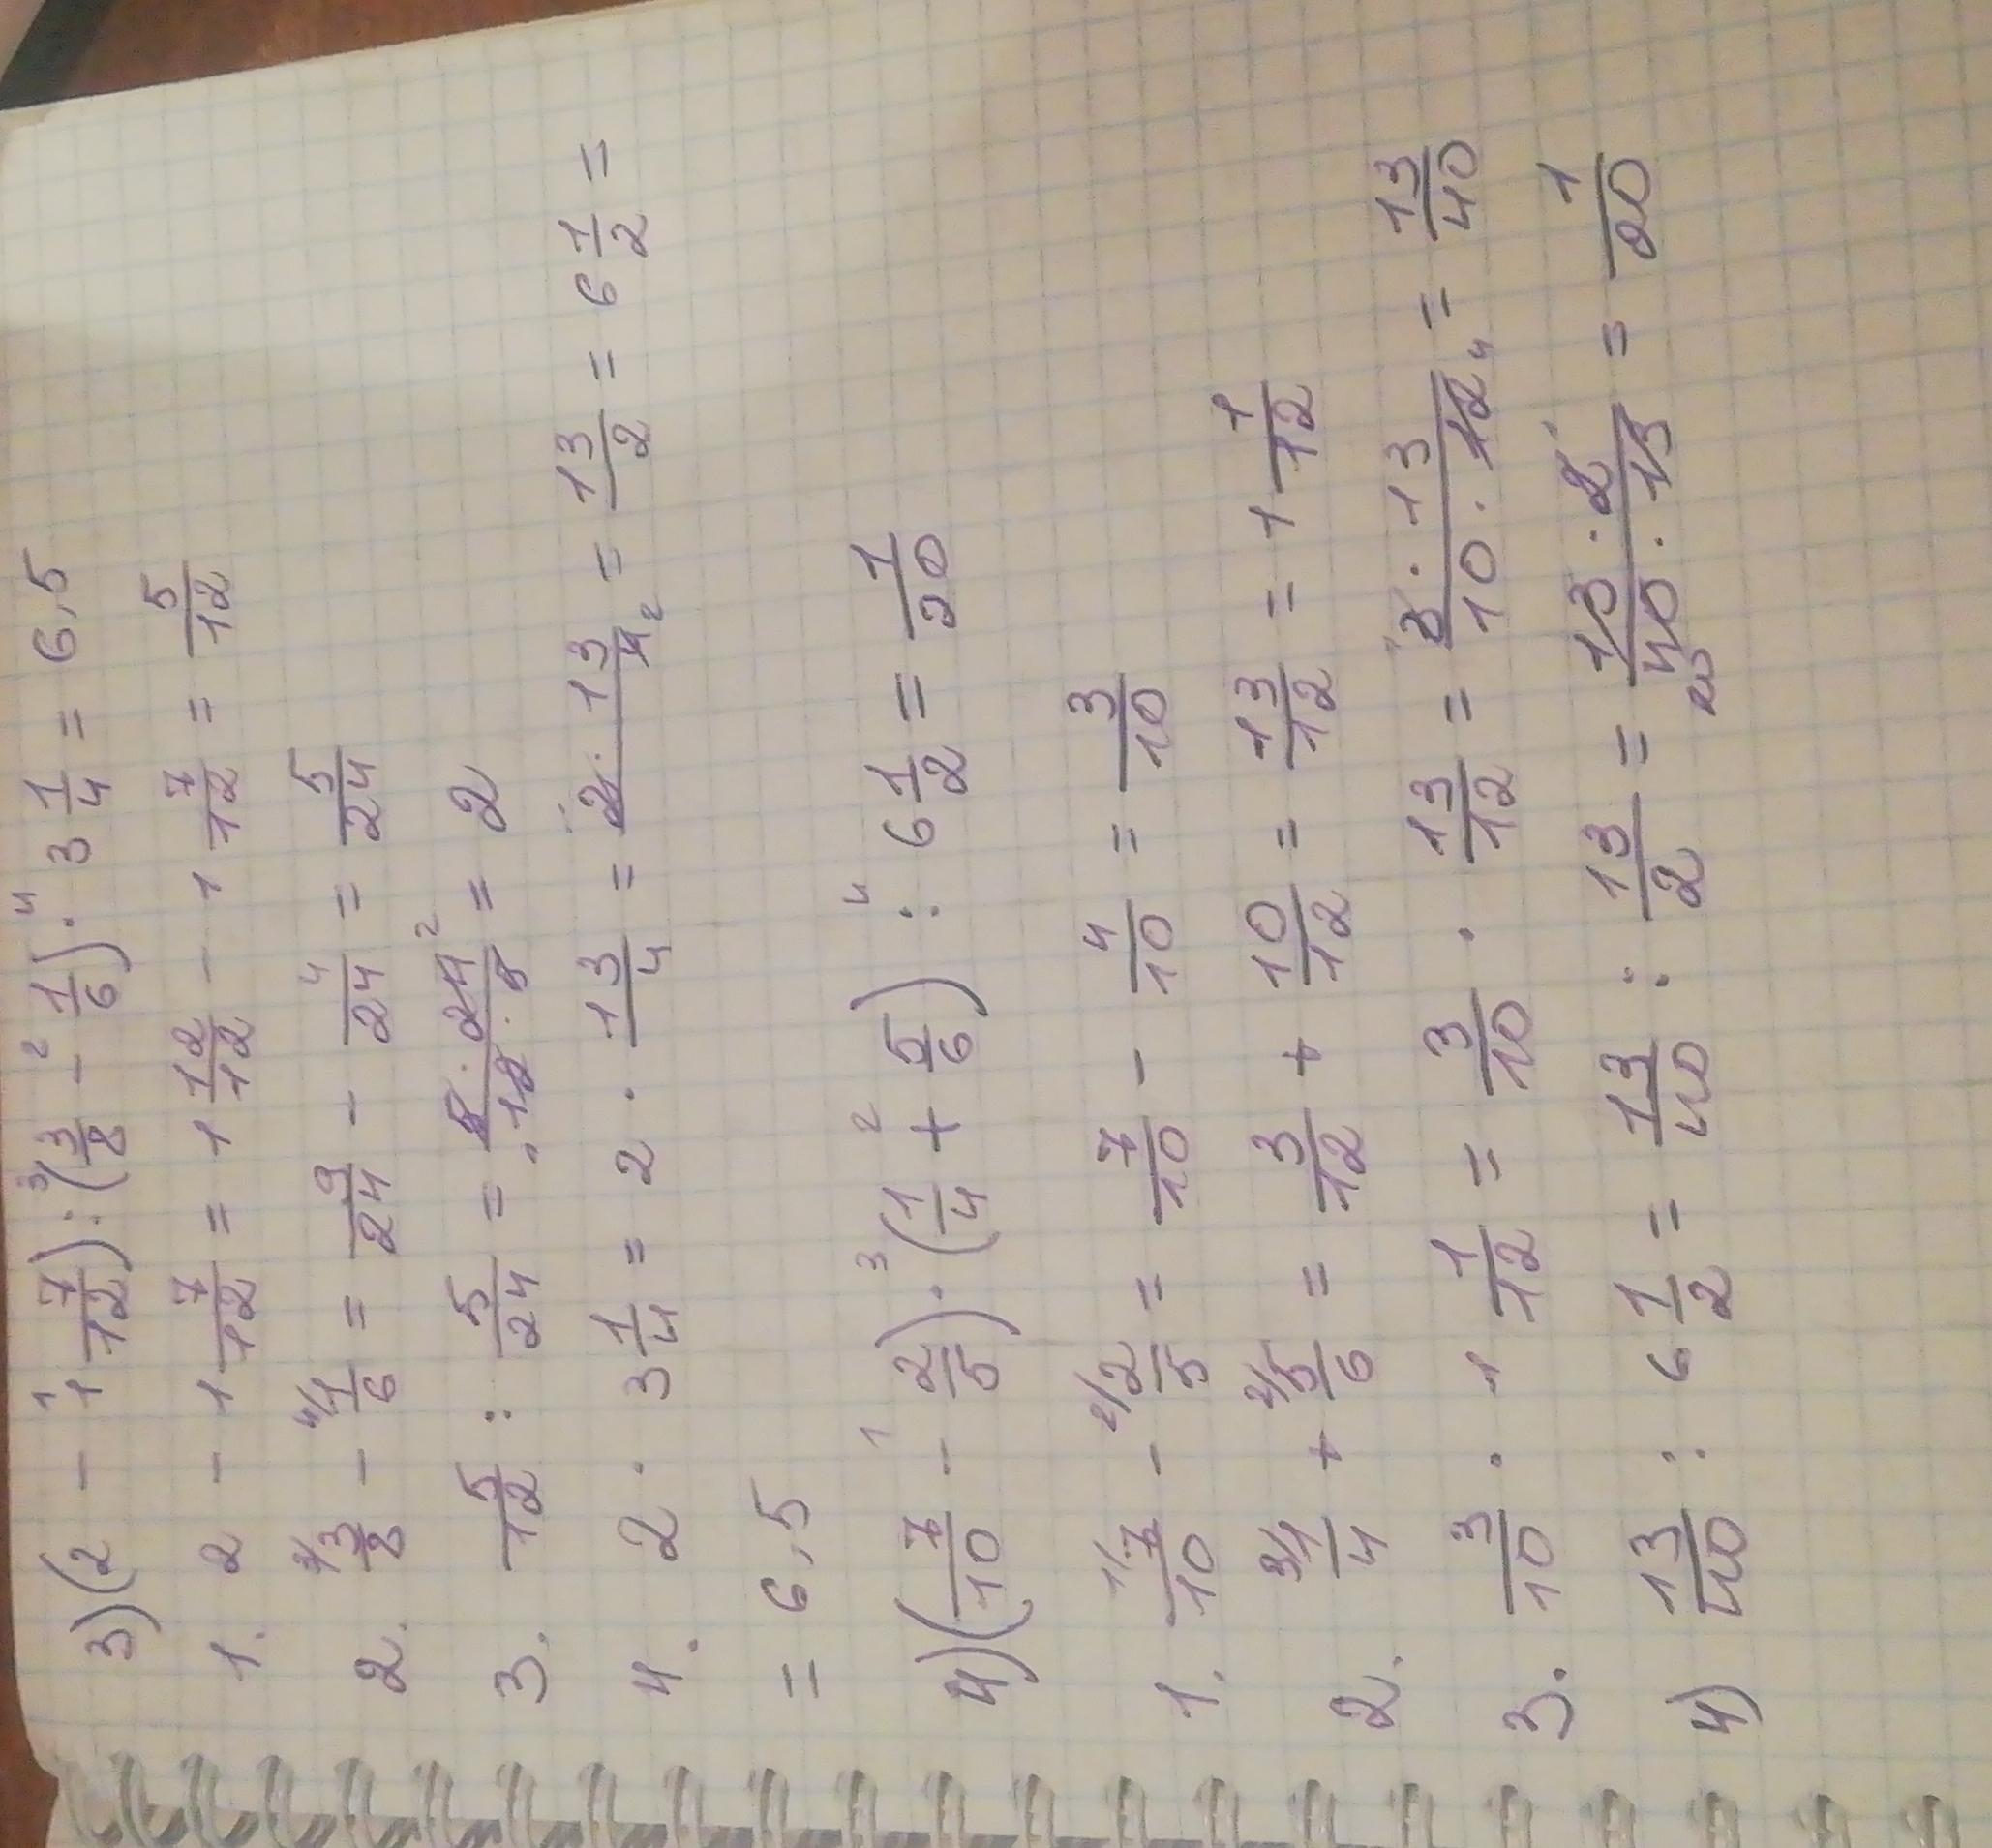 3) (2 - 1 7/12) : (3/8 - 1/6) · 3 1/4 = 6,5
1. 2 - 1 7/12 = 1 12/12 - 1 7/12 = 5/12
2. 3/8 - 1/6 = 9/24 - 4/24 = 5/24
3. 5/12 : 5/24 = 5 · 24/12 · 5 = 2
4. 2 · 3 1/4 = 2 · 13/4 = 2 · 13/4 = 13/2 = 6 1/2 =
= 6,5
4) (7/10 - 2/5) · (1/4 + 5/6) : 6 1/2 = 1/20
1. 7/10 - 2/5 = 7/10 - 4/10 = 3/10
2. 1/4 + 5/6 = 3/12 + 10/12 = 13/12 = 1 1/12
3. 3/10 · 1 1/12 = 3/10 · 13/12 = 3 · 13/10 · 12 = 13/40
4) 13/40 : 6 1/2 = 13/40 : 13/2 = 13 · 2/40 · 13 = 1/20